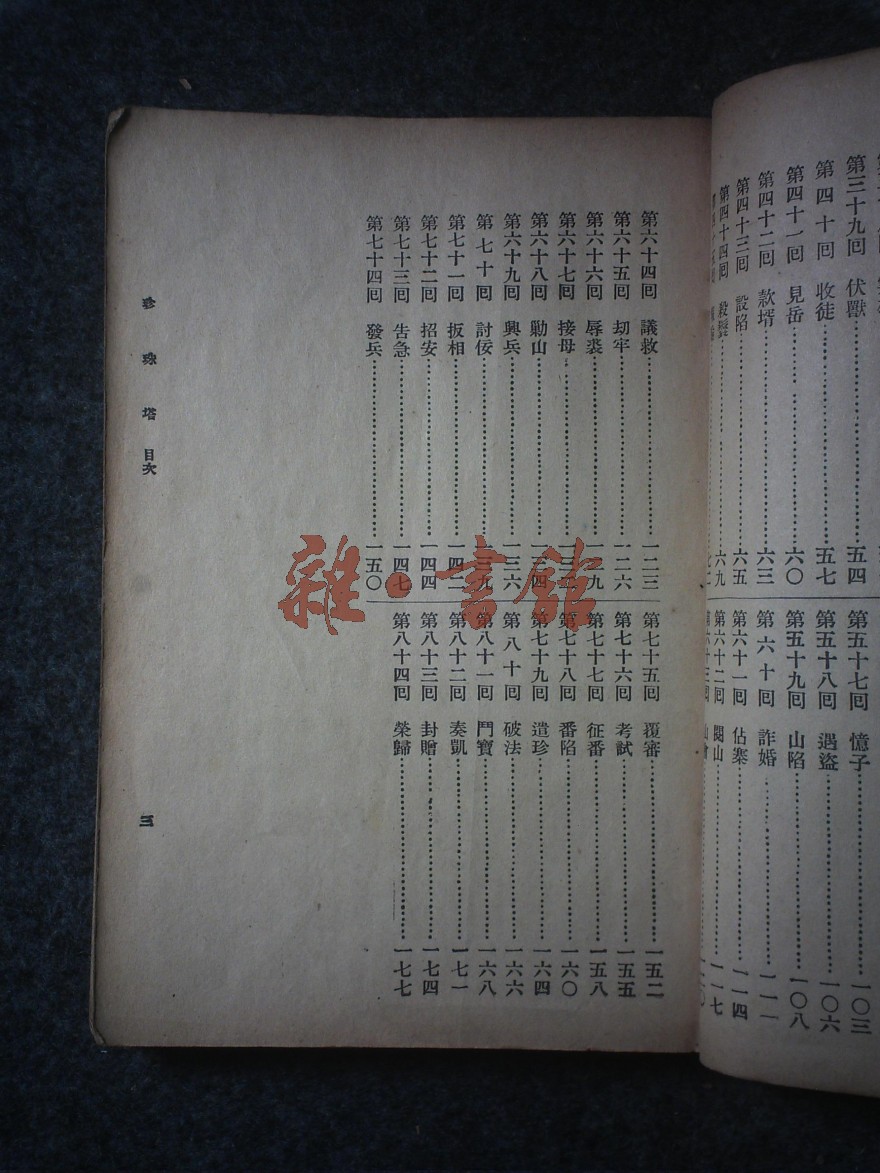 第三十九回 伏獸……五四
第四十回 收徒……五七
第四十一回 見岳……六〇
第四十二回 款壻……六三
第四十三回 設陷……六五
第四十四回……六九
第五十七回 憶子……一〇三
第五十八回 遇盜……一〇六
第五十九回 山陷……一〇八
第六十回 詐婚……一一一
第六十一回 估寨……一一四
第六十二回 閱山……一一七
第六十三回
第六十四回 議救……一二三
第六十五回 刧牢……一二六
第六十六回 辱裘……一二九
第六十七回 接母……一三二
第六十八回 勦山……一三四
第六十九回 興兵……一三六
第七十回 討佞……一三九
第七十一回 扳相……一四二
第七十二回 招安……一四四
第七十三回 吿急……一四七
第七十四回 發兵……一五〇
第七十五回 覆審……一五二
第七十六回 考試……一五五
第七十七回 征番……一五八
第七十八回 番陷……一六〇
第七十九回 遣珍……一六四
第八十回 破法……一六六
第八十一回 鬥寶……一六八
第八十二回 奏凱……一七一
第八十三回 封贈……一七四
第八十四回 榮歸……一七七
珍珠塔 目次
三
雜·書館